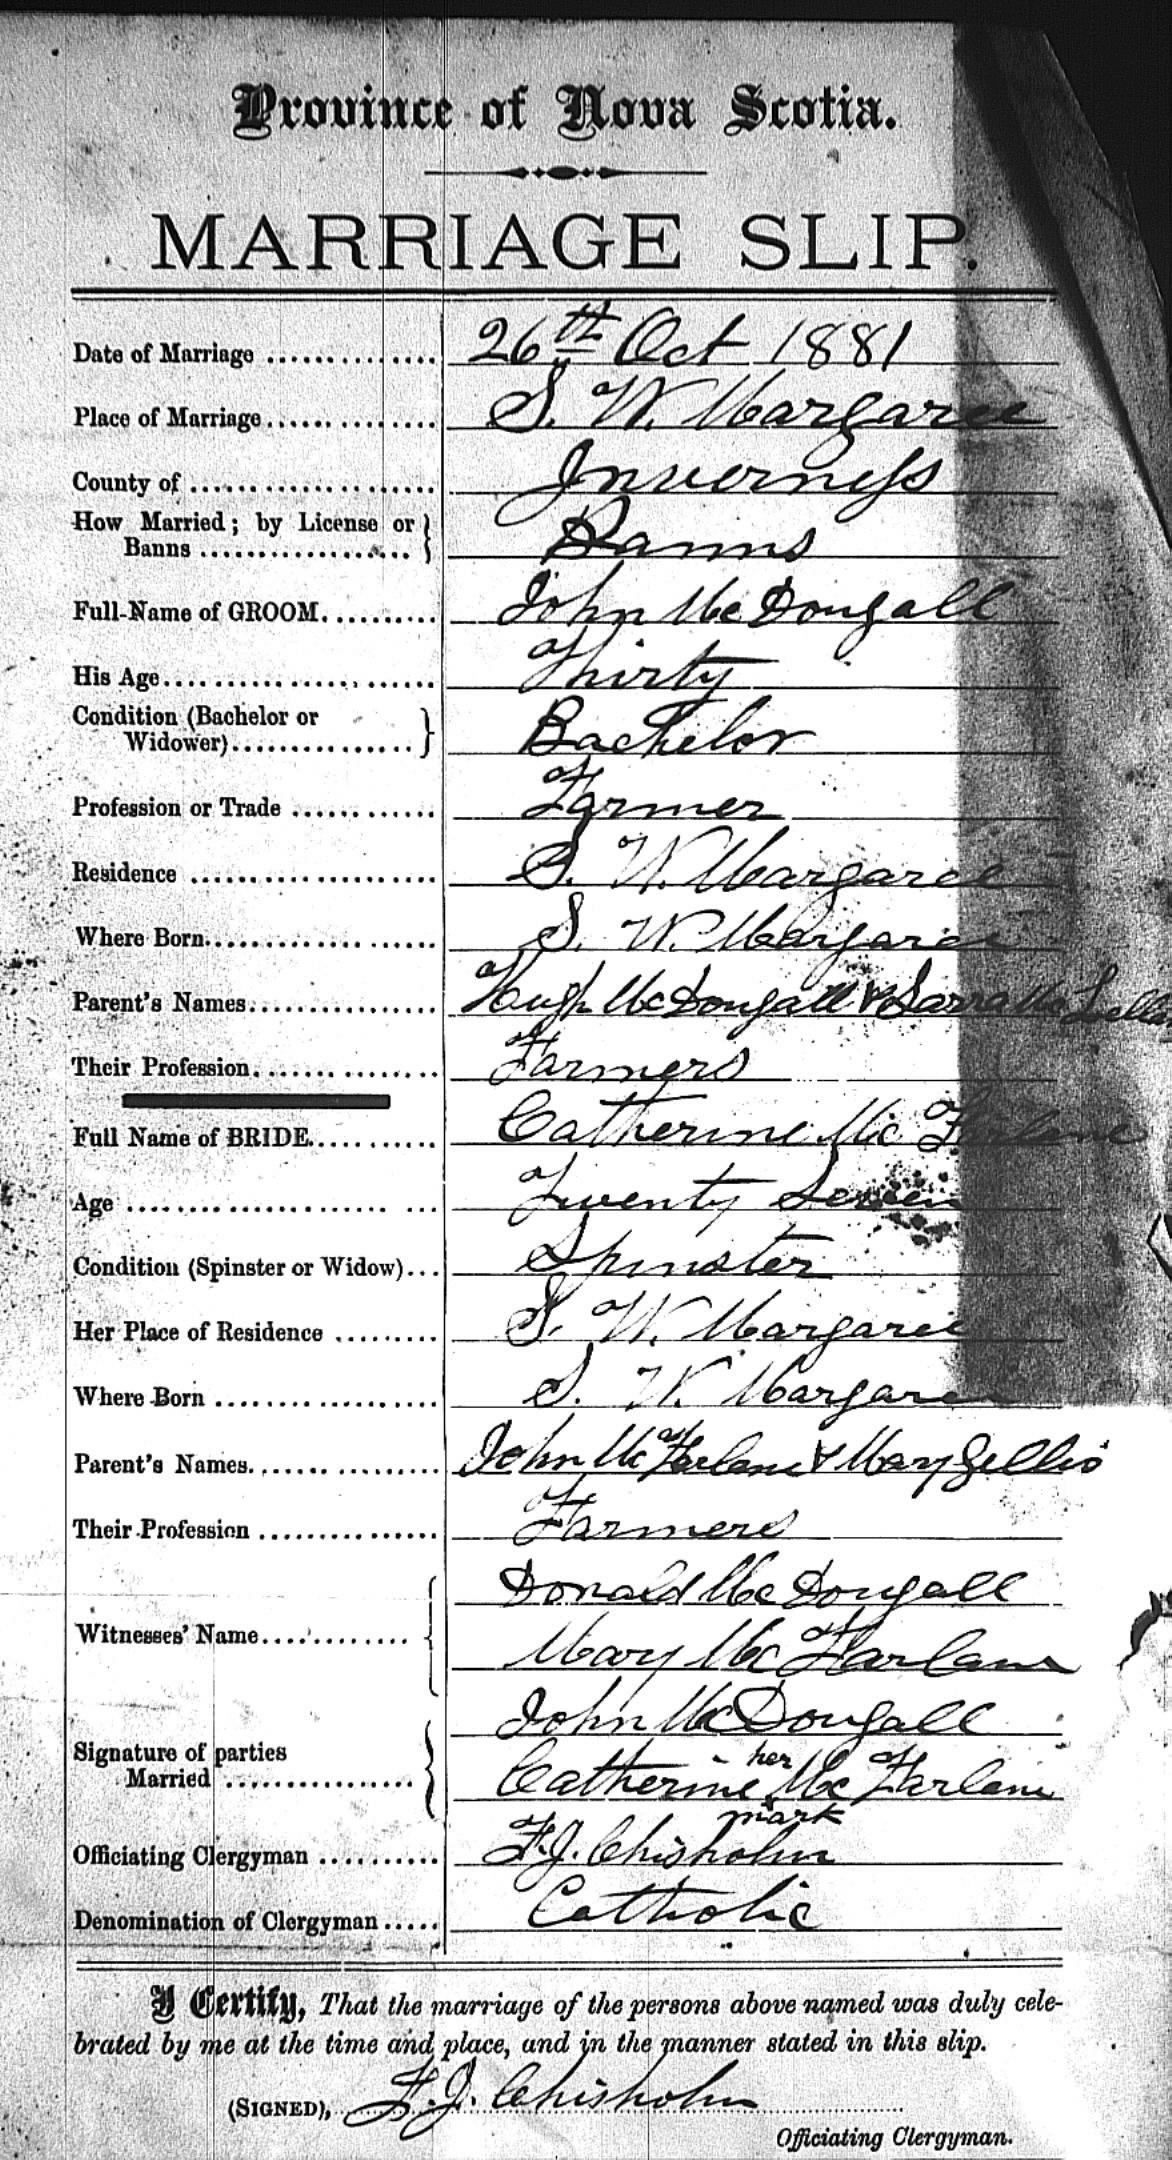 Province of Nova Scotia.
MARRIAGE SLIP.
Date of Marriage 26th Oct 1881
Place of Marriage S. W. Margaree
County of Inverness
How Married; by License or
Banns Banns
Full Name of GROOM John McDougall
His Age Thirty
Condition (Bachelor or
Widower) Bachelor
Profession or Trade Farmer
Residence S. W. Margaree
Where Born S. W. Margaree
Parent's Names Hugh McDougall & Sarra Mc
Their Profession Farmers
Full Name of BRIDE Catherine McFarlane
Age Twenty Seven
Condition (Spinster or Widow) Spinster
Her Place of Residence S. W. Margaree
Where Born S. W. Margaree
Parent's Names. John McFarlane & Mary Gillis
Their Profession Farmers
Donald McDougall
Witnesses' Name
Mary McFarlane
John McDougall
Signature of parties
Married Catherine her McFarlane
mark
Officiating Clergyman F. J. Chisholm
Denomination of Clergyman Catholic
I Certify, That the marriage of the persons above named was duly cele-
brated by me at the time and place, and in the manner stated in this slip.
(SIGNED), F. J. Chisholm
Officiating Clergyman.